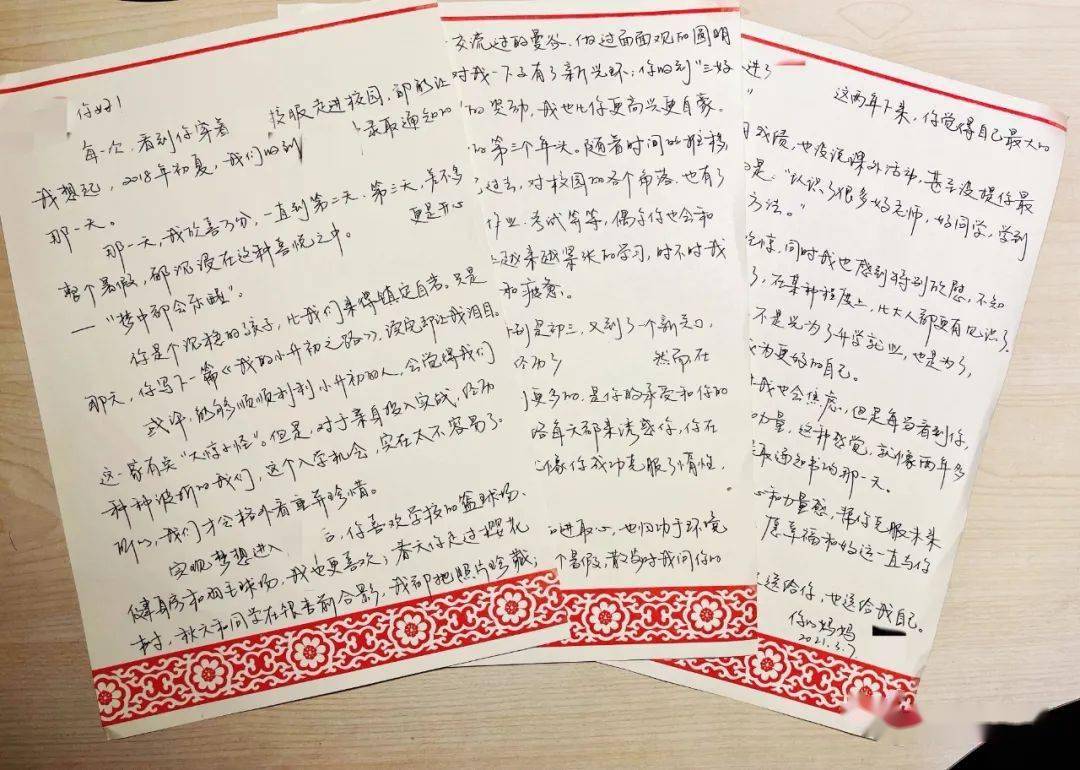 你好!
每次,看到你穿着 校服走进校园,都能让
我想起,2018年初夏,我们收到 录取通知的
那一天。
那一天,我欣喜万分,一直到第二天、第三天,差不多
整个暑假,都沉浸在这种喜悦之中。 更是开心
—"梦中都会乐醒"。
你是个沉稳的孩子,比我们来得镇定自若。只是
那天,你写下一篇《我的小升初之路》,读完却让我泪目。
或许,能够顺顺利利小升初的人,会觉得我们
这一家有点"大惊小怪"。但是,对于亲身投入实战,经历
种种波折的我们,这个入学机会,实在太不容易了。
所以,我们才会格外看重并珍惜。
实现梦想进入 后,你喜欢学校的篮球场、
健身房和羽毛球场,我也更喜欢;春天你走过樱花
树,秋天和同学在银杏前合影,我都把照片珍藏;
交流过的曼谷、做过面面观的圆明
对我一下子有了新光环;你收到"三好
的奖励,我也比你更高兴更自豪。
的第三个年头。随着时间的推移
过去,对校园的各个角落也有了
作业、考试等等,偶尔你也会和
越来越紧张的学习,时不时我
和疲惫。
别是初三,又到了一个新关口,
经历了 然而在
更多的,是你的承受和你的
每天都来诱惑你,你在
像你成功克服了惰性,
的进取心,也归功于环境
个暑假,散步时我问你的
进了
这两年下来,你觉得自己最大的
成绩,也没说课外活动,甚至没提你最
的是:"认识了很多好老师,好同学,学到
方法。"
吃惊,同时我也感到特别欣慰,不知
了,在某种程度上,比大人都更有见识了。
不是光为了升学就业,也是为了,
成为更好的自己。
我也会焦虑,但是每当看到你,
力量,这种感觉,就像两年多
录取通知书的那一天。
和力量感,帮你克服未来
愿幸福和好运一直与你
送给你,也送给我自己。
你的妈妈
2021.3.7